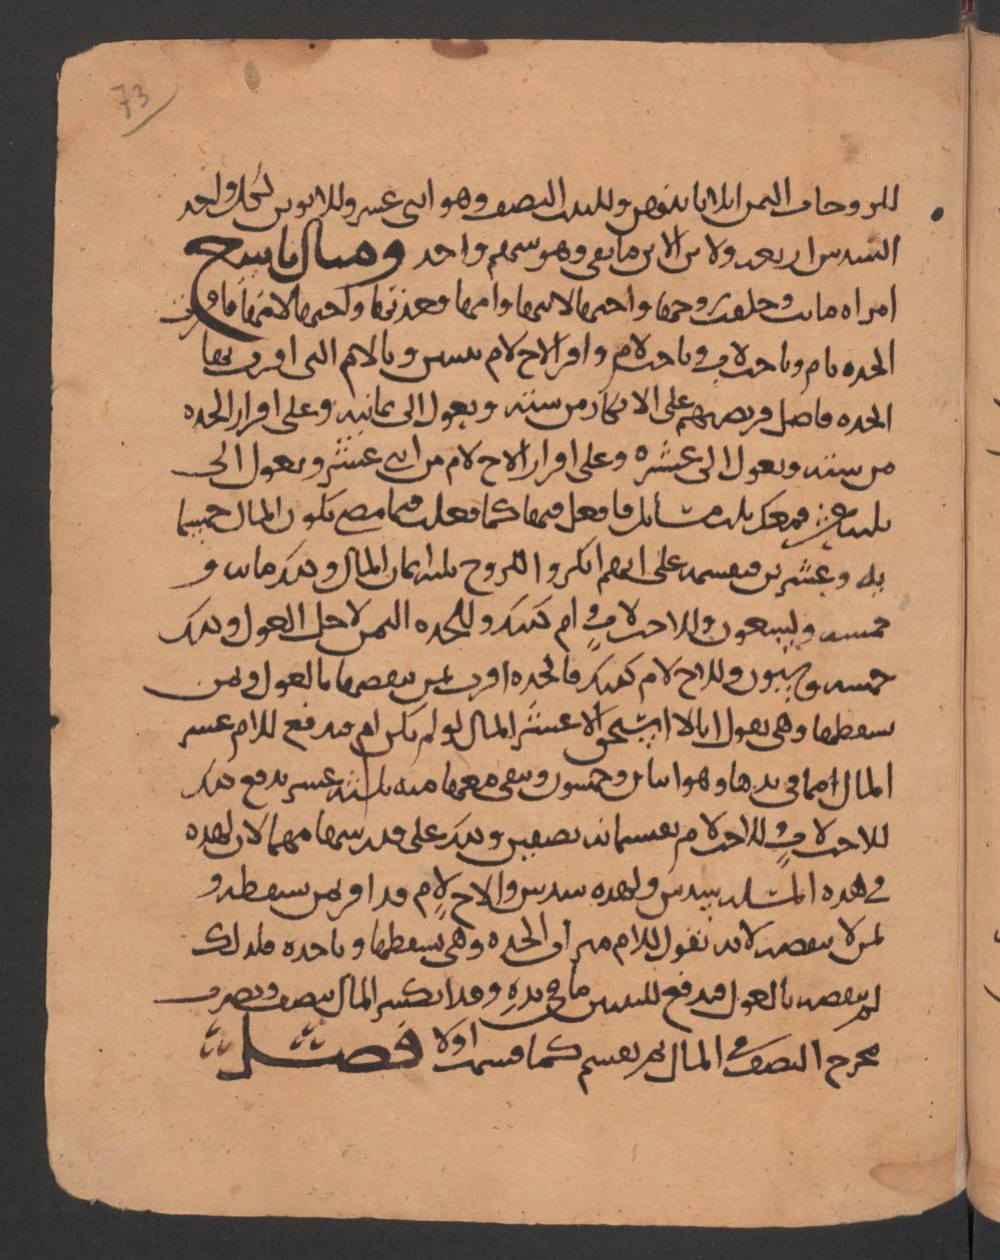 73
للزوجات الثمن ثلاثا بينهن وللبنت النصف وهو اثنى عشر وللابوين لكل واحد
السدس اربعه ولابن الابن ما بقى وهو سهم واحد ومثال ناسخ
امراه ماتت وخلفت زوجها واختها لابيها وامها وجدتها واختها لامها فاقرت
الجده بام وباخت لاب وباخت لام واقر الاخ لام ببنتين وبالام التى اقرت بها
الجده فاصل فريضتهم على الانكار من سته وتعول الى ثمانيه وعلى اقرار الجده
من سته وتعول الى عشره وعلى اقرار الاخ لام من اثنى عشر وتعول الى
ثلثه عشر فمعك ثلث مسائل فافعل فيها كما فعلت فيما مضى يكون المال خمسما
يه وعشرين فيقسمه على انهم انكروا للزوج ثلثه اثمان المال وذلك مايه و
خمسه وتسعون وللاخت لاب وام كذلك وللجده الثمن لاجل العول وذلك
خمسه وستون وللاخ لام كذلك فالجده اقرت لمن ينقصها بالعول ولمن
يسقطها وهى تقول انا لا استحق الا عشر المال لو لم يكن ام فتدفع للام عشر
المال مما فى يدها وهو اثنان وخمسون ويبقى معها منه ثلثه عشر يدفع ذلك
للاخت لاب وللاخت لام يقسمانه نصفين وذلك على قدر سهامهما لان لهذه
فى هذه المسئله سدس ولهذه سدس والاخ لام قد اقر بمن يسقطه و
لمن لا ينقصه لانه يقول للام ميراث الجده وهى يسقطها وياخذه فلذلك
لم ينقصه بالعول فيدفع للبنتين ما فى يده وقد انكسر المال بنصف وتضرب
مخرج النصف فى المال ثم يقسم كما قسمت اولا فصل